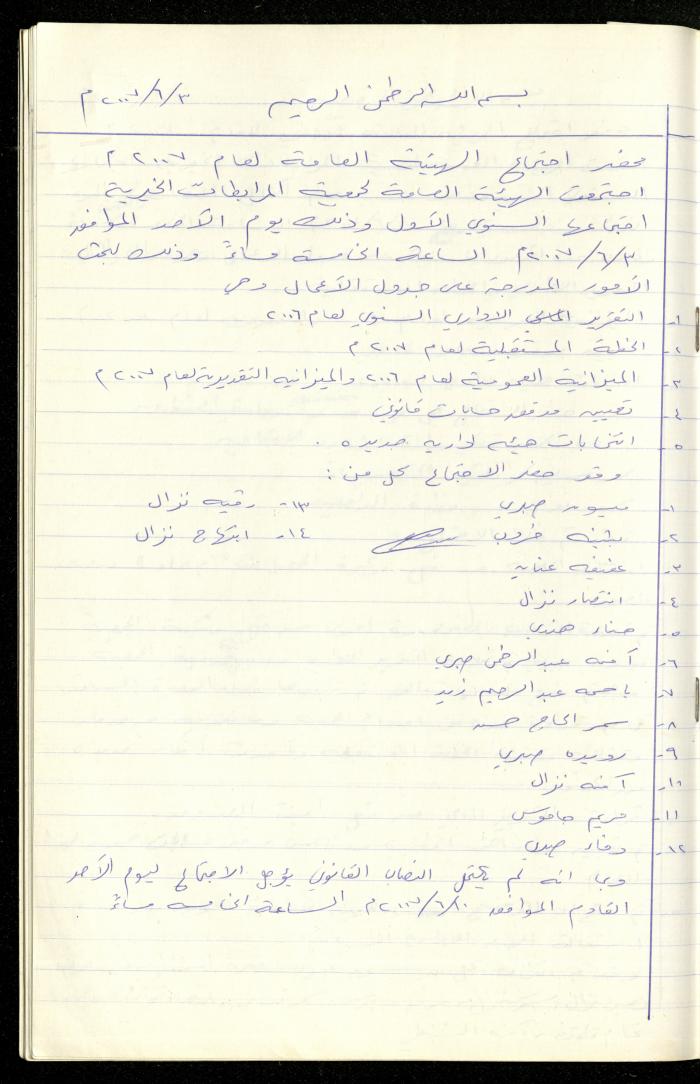 بسم الله الرحمن الرحيم ٢٠٠٧/٦/٣م
محضر اجتماع الهيئة العامة لعام ٢٠٠٧م
اجتمعت الهيئة العامة لجمعية المرابطات الخيرية
اجتماعها السنوي الأول وذلك يوم الأحد الموافق
٢٠٠٧/٦/٣م الساعة الخامسة مساءً وذلك لبحث
الأمور المدرجة على جدول الأعمال وهي
١- التقرير الاداري السنوي لعام ٢٠٠٦
٢- الخطة المستقبلية لعام ٢٠٠٧م
٣- الميزانية العمومية لعام ٢٠٠٦ والميزانيه التقديرية لعام ٢٠٠٧م
٤- تعيين مدقق حسابات قانوني
٥- انتخابات هيئه اداريه جديده .
وقد حضر الاجتماع كل من :
١- ميسون صبري ١٣- رقيه نزال
٢- بثينه ١٤- ابتهاج نزال
٣- عفيفه عنايه
٤- انتصار نزال
٥- هناء هندي
٦- آمنه عبد الرحمن صبري
٧- باسمه عبد الرحيم زيد
٨- سمر الحاج حسن
٩- رويده صبري
١٠- آمنه نزال
١١- مريم جاموس
١٢- وفاء صبري
وبما انه لم يكتمل النصاب القانوني يؤجل الاجتماع ليوم الأحد
القادم الموافق ٢٠٠٧/٦/١٠م الساعة الخامسه مساءً